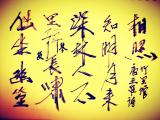 独坐幽篁
里弹琴复長嘯
深林人不
知明月来
相照
竹里館
唐王维詩